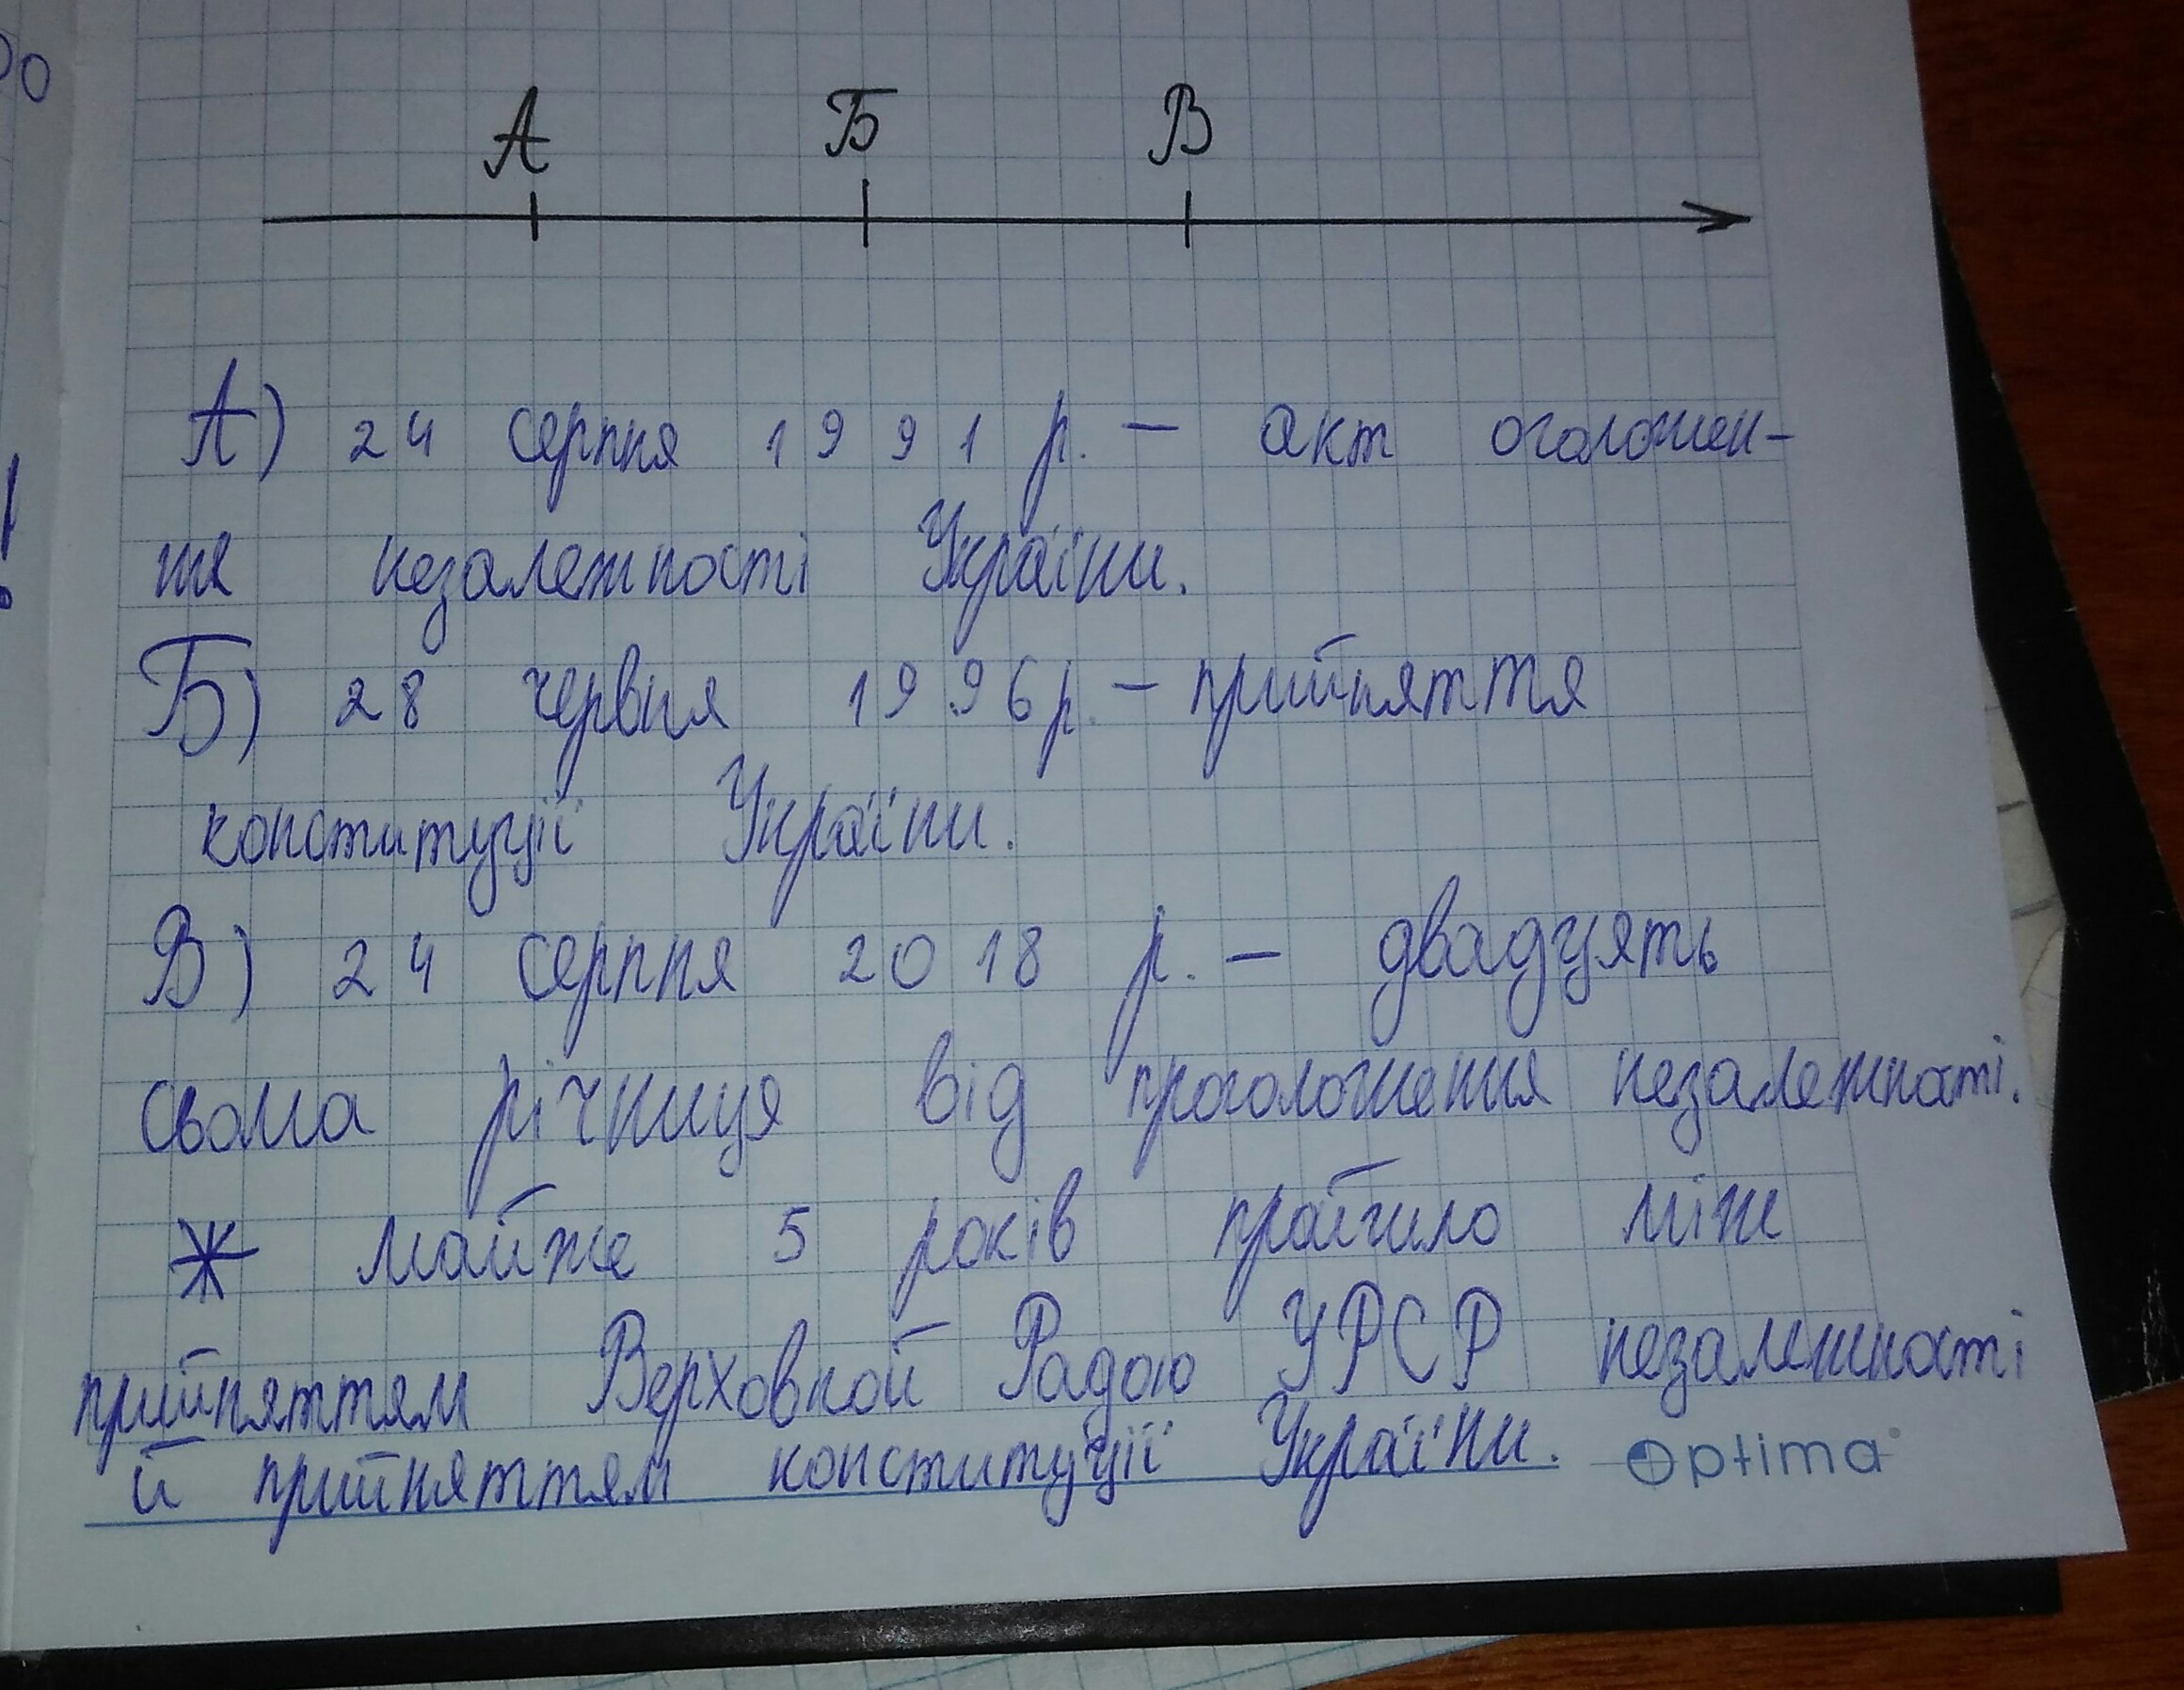 А Б В
А) 24 серпня 1991 р. – акт оголошен-
ня незалежності України.
Б) 28 червня 1996р. – прийняття
конституції України.
В) 24 серпня 2018 р. – двадцять
сьома річниця від проголошення незалежності.
* майже 5 років пройшло між
прийняттям Верховной Радою УРСР незалежності
й прийняттям конституції України.
Optima